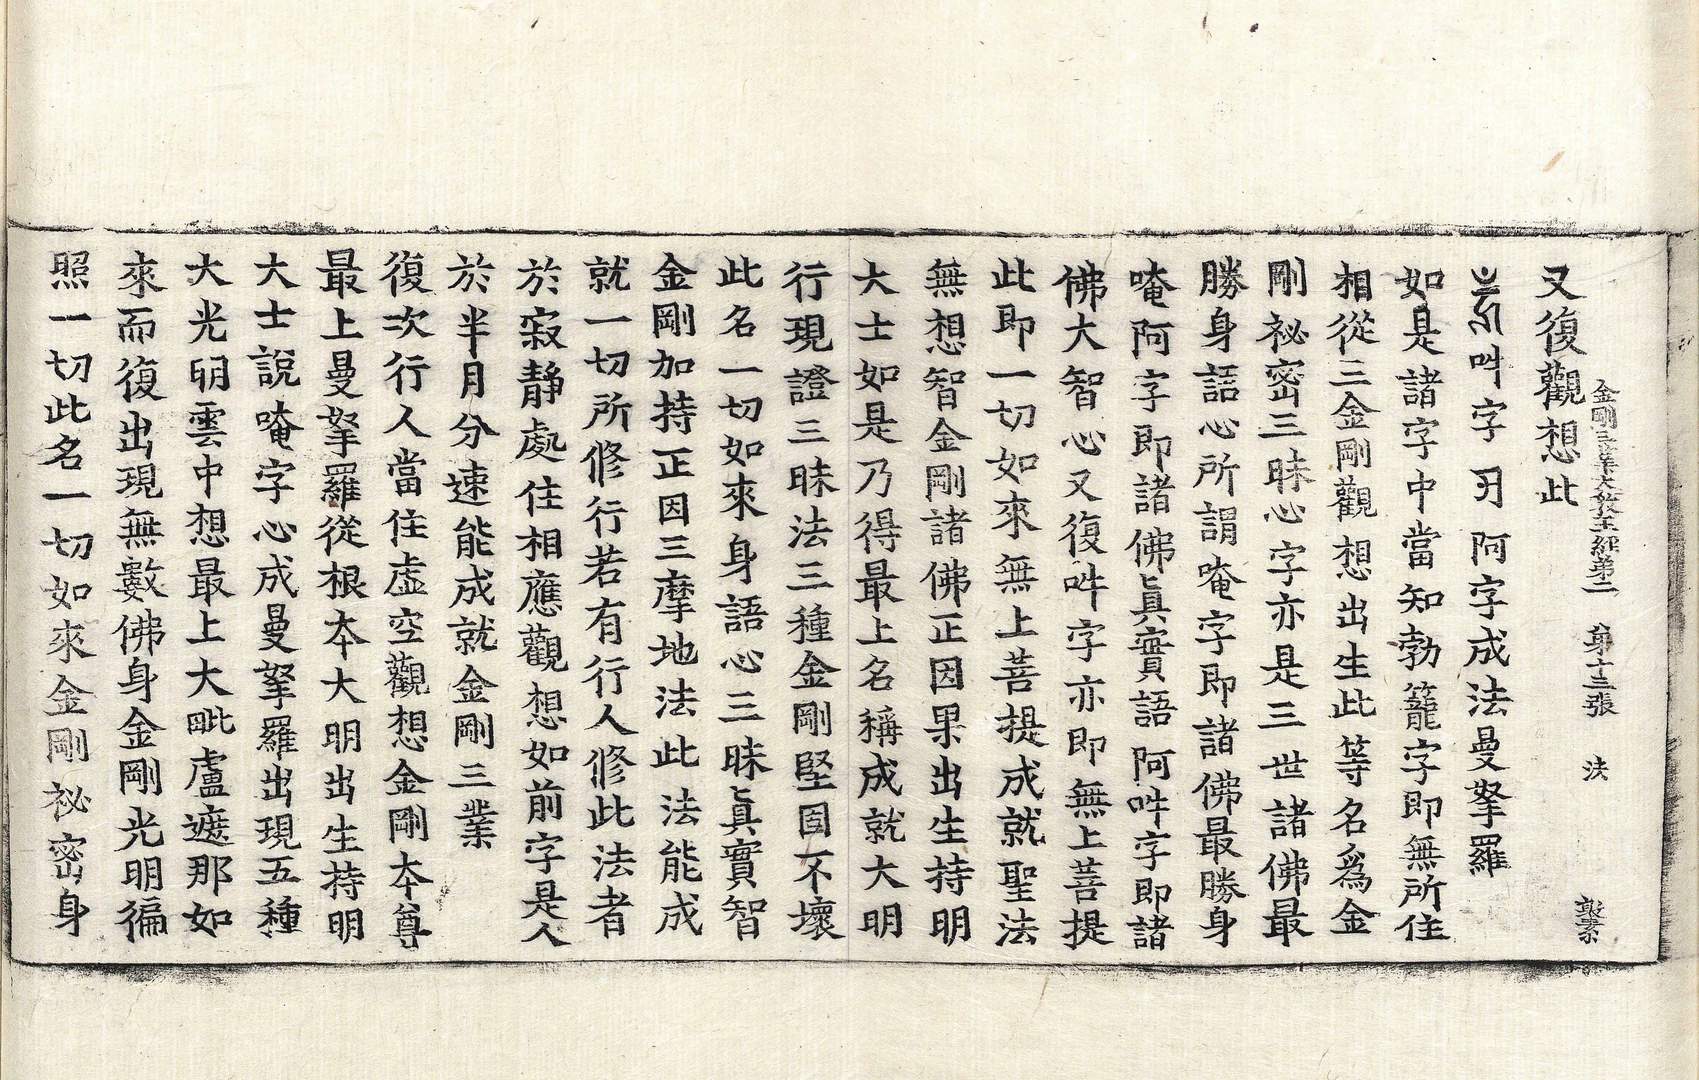 又復觀想此
金剛三業大教王經第二 第十三張 法
吽字 阿字成法曼拏羅
如是諸字中當知勃籠字即無所住
相從三金剛觀想出生此等名爲金
剛祕密三昧心字亦是三世諸佛最
勝身語心所謂唵字即諸佛最勝身
唵阿字即諸佛眞實語阿吽字即諸
佛大智心又復吽字亦即無上菩提
此即一切如來無上菩提成就聖法
無想智金剛諸佛正因果出生持明
大士如是乃得最上名稱成就大明
行現證三昧法三種金剛堅固不壞
此名一切如來身語心三昧眞實智
金剛加持正因三摩地法此法能成
就一切所修行若有行人修此法者
於寂靜處住相應觀想如前字是人
於半月分速能成就金剛三業
復次行人當住虛空觀想金剛本尊
最上曼拏羅從根本大明出生持明
大士說唵字心成曼拏羅出現五種
大光明雲中想最上大毗盧遮那如
來而復出現無數佛身金剛光明徧
照一切此名一切如來金剛祕密身